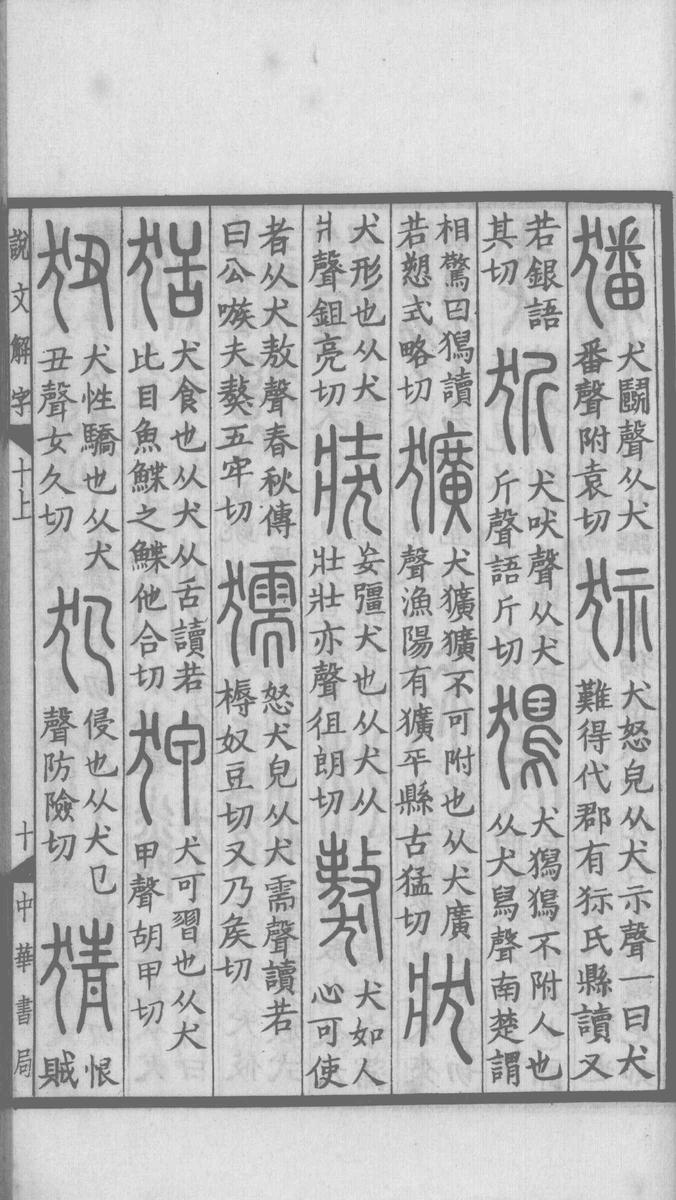 㺕犬鬭聲从犬番聲附袁切狋犬怒皃从犬示聲一曰犬難得代郡有狋氏縣讀又
若銀語其切㹞犬吠聲从犬斤聲語斤切獡犬獡獡不附人也从犬舄聲南楚謂
相驚曰獡讀若愬式略切獷犬獷獷不可附也从犬廣聲漁陽有獷平縣古猛切狀
犬形也从犬爿聲鉏亮切奘妄彊犬也从犬从壯壯亦聲徂朗切獒犬如人心可使
者从犬敖聲春秋傳曰公嗾夫獒五牢切獳怒犬皃从犬需聲讀若槈奴豆切又乃矦切
狧犬食也从犬从舌讀若比目魚鰈之鰈他合切狎犬可習也从犬甲聲胡甲切
狃犬性驕也从犬丑聲女久切犯侵也从犬㔾聲防險切猜恨賊
說文解字 十上 十 中華書局